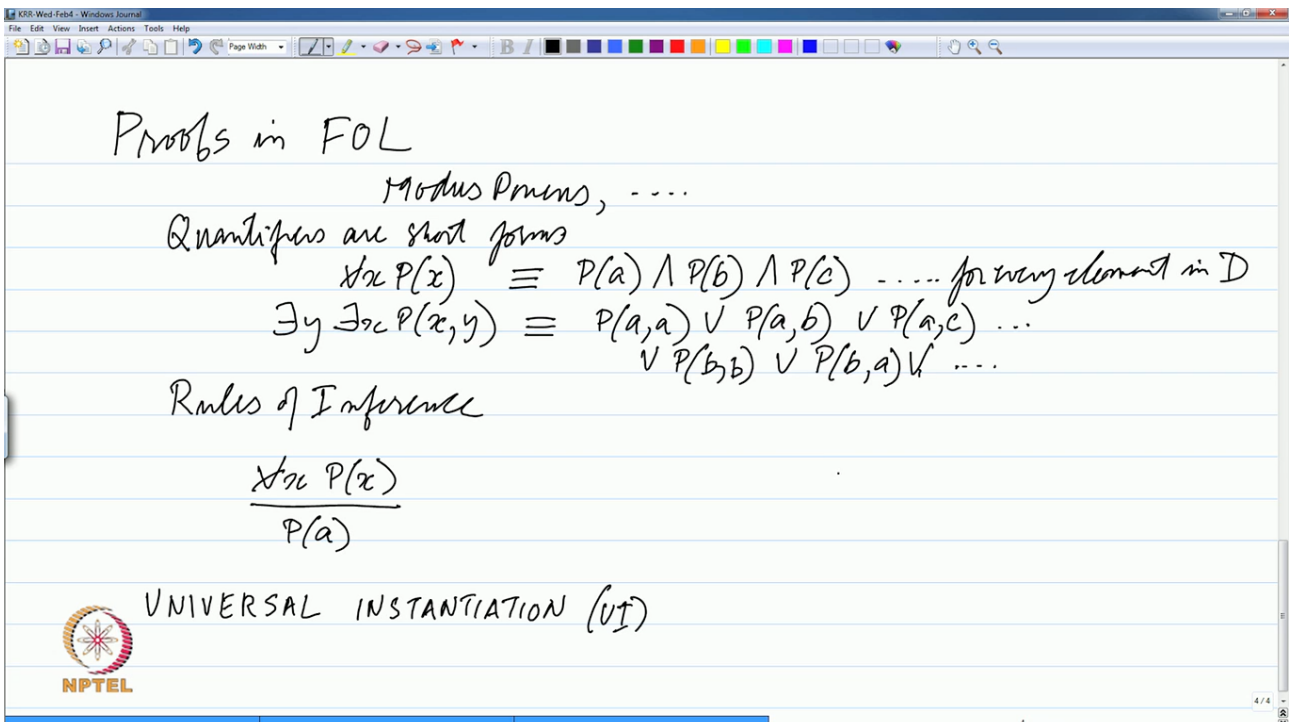 KRR-Wed-Feb4 - Windows Journal
File Edit View Insert Actions Tools Help
Page Width
Proofs in FOL
Modus Ponens, ....
Quantifiers are short forms
∀x P(x) ≡ P(a) ∧ P(b) ∧ P(c) ..... for every element in D
∃y ∃x P(x,y) ≡ P(a,a) ∨ P(a,b) ∨ P(a,c) ...
∨ P(b,b) ∨ P(b,a) ∨ ....
Rules of Inference
∀x P(x)
P(a)
UNIVERSAL INSTANTIATION (UI)
NPTEL
4/4